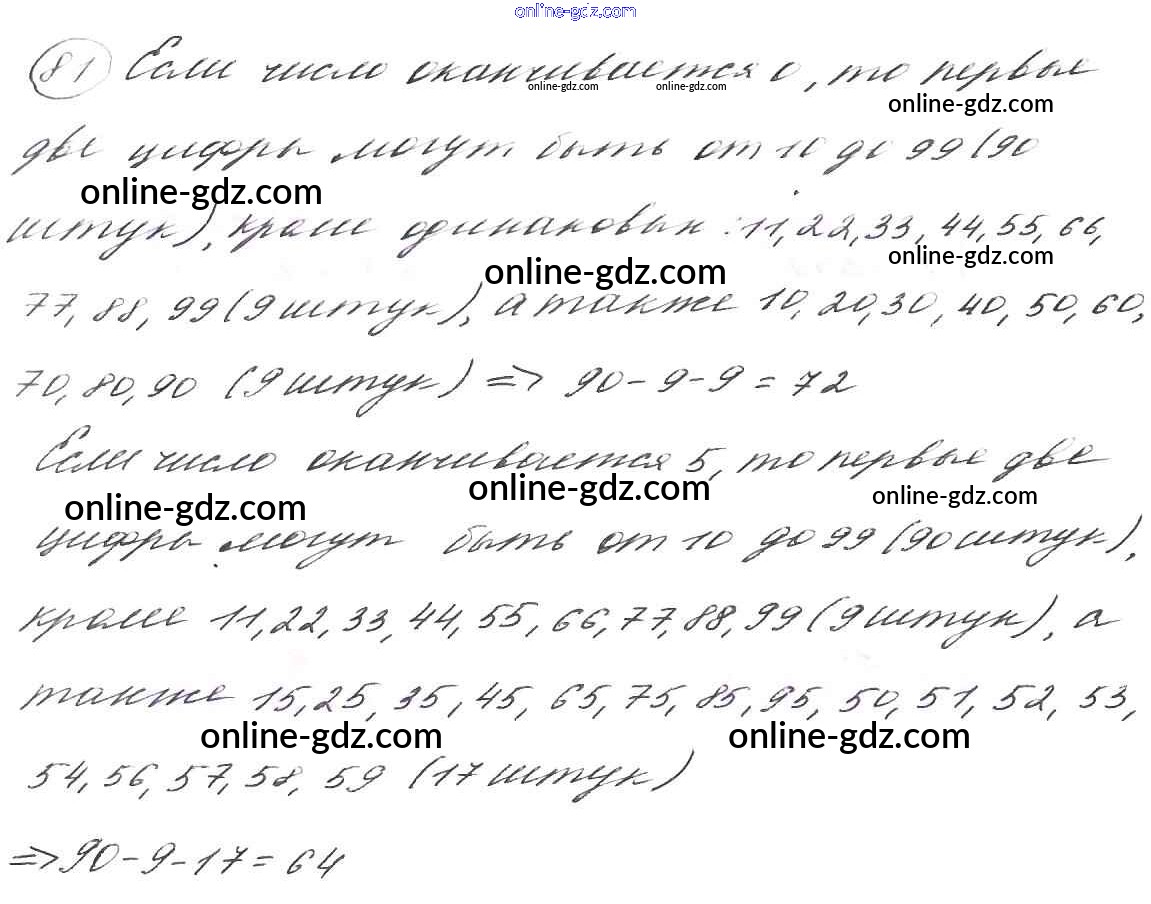 online-gdz.com
81 Если число оканчивается 0, то первые
online-gdz.com online-gdz.com
online-gdz.com
две цифры могут быть от 10 до 99 (90
online-gdz.com
штук), кроме одинаковых: 11, 22, 33, 44, 55, 66,
online-gdz.com
online-gdz.com
77, 88, 99 (9 штук), а также 10, 20, 30, 40, 50, 60,
70, 80, 90 (9 штук) => 90 - 9 - 9 = 72
Если число оканчивается 5, то первые две
online-gdz.com
online-gdz.com
online-gdz.com
цифры могут быть от 10 до 99 (90 штук),
кроме 11, 22, 33, 44, 55, 66, 77, 88, 99 (9 штук), а
также 15, 25, 35, 45, 65, 75, 85, 95, 50, 51, 52, 53,
online-gdz.com
online-gdz.com
54, 56, 57, 58, 59 (17 штук)
=> 90 - 9 - 17 = 64